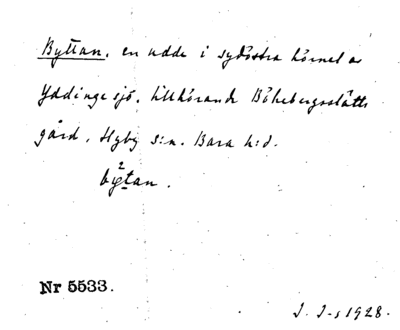 Byttan, en udde i sydöstra hörnet av
Yddinge sjö, tillhörande Bökebergsslätts
gård, Hyby s:n. Bara h:d.
by²tan.
Nr 5533.
I. I-s 1928.